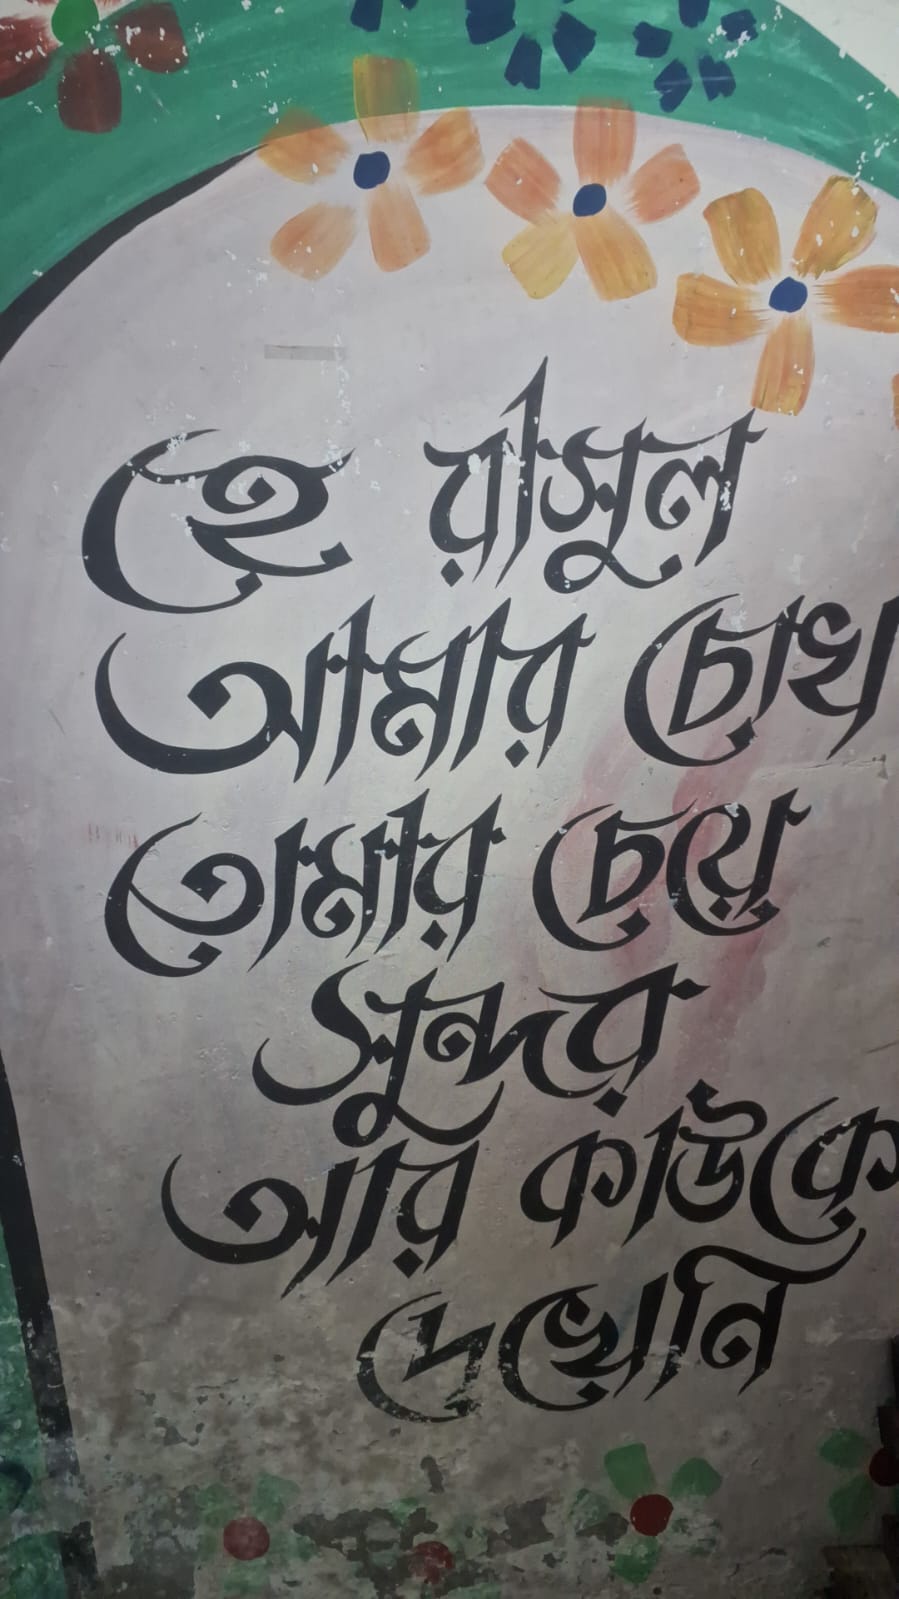 হে রাসুল
আমার চোখ
তোমার চেয়ে
সুন্দর
আর কাউকে
দেখেনি